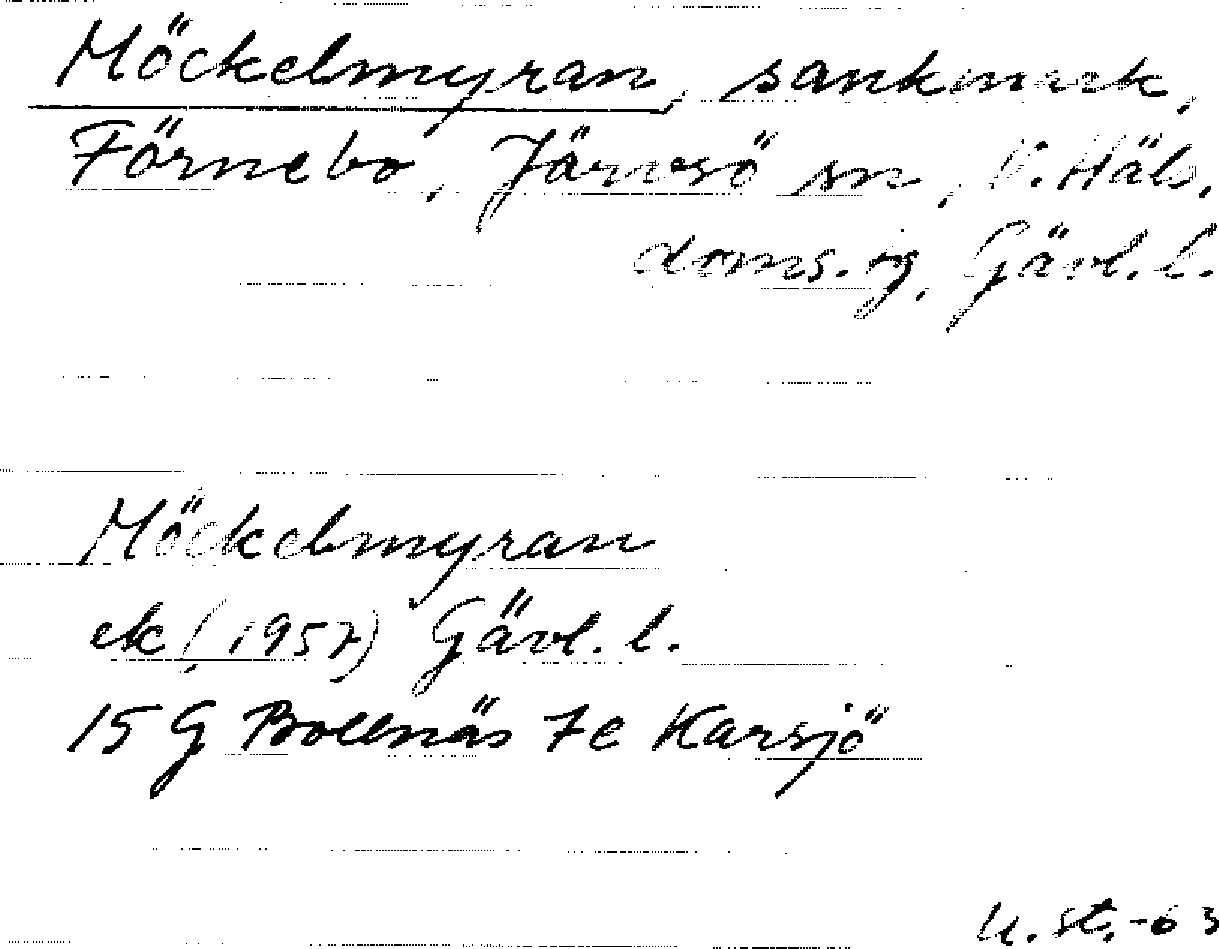 Möckelmyran, sankmark,
Förnebo, Järvsö sn, V. Häls.
doms.ig, Gävl. l.
Möckelmyran
ek (1957) Gävl. l.
15 G Bollnäs 7e Karsjö
U. St. -63